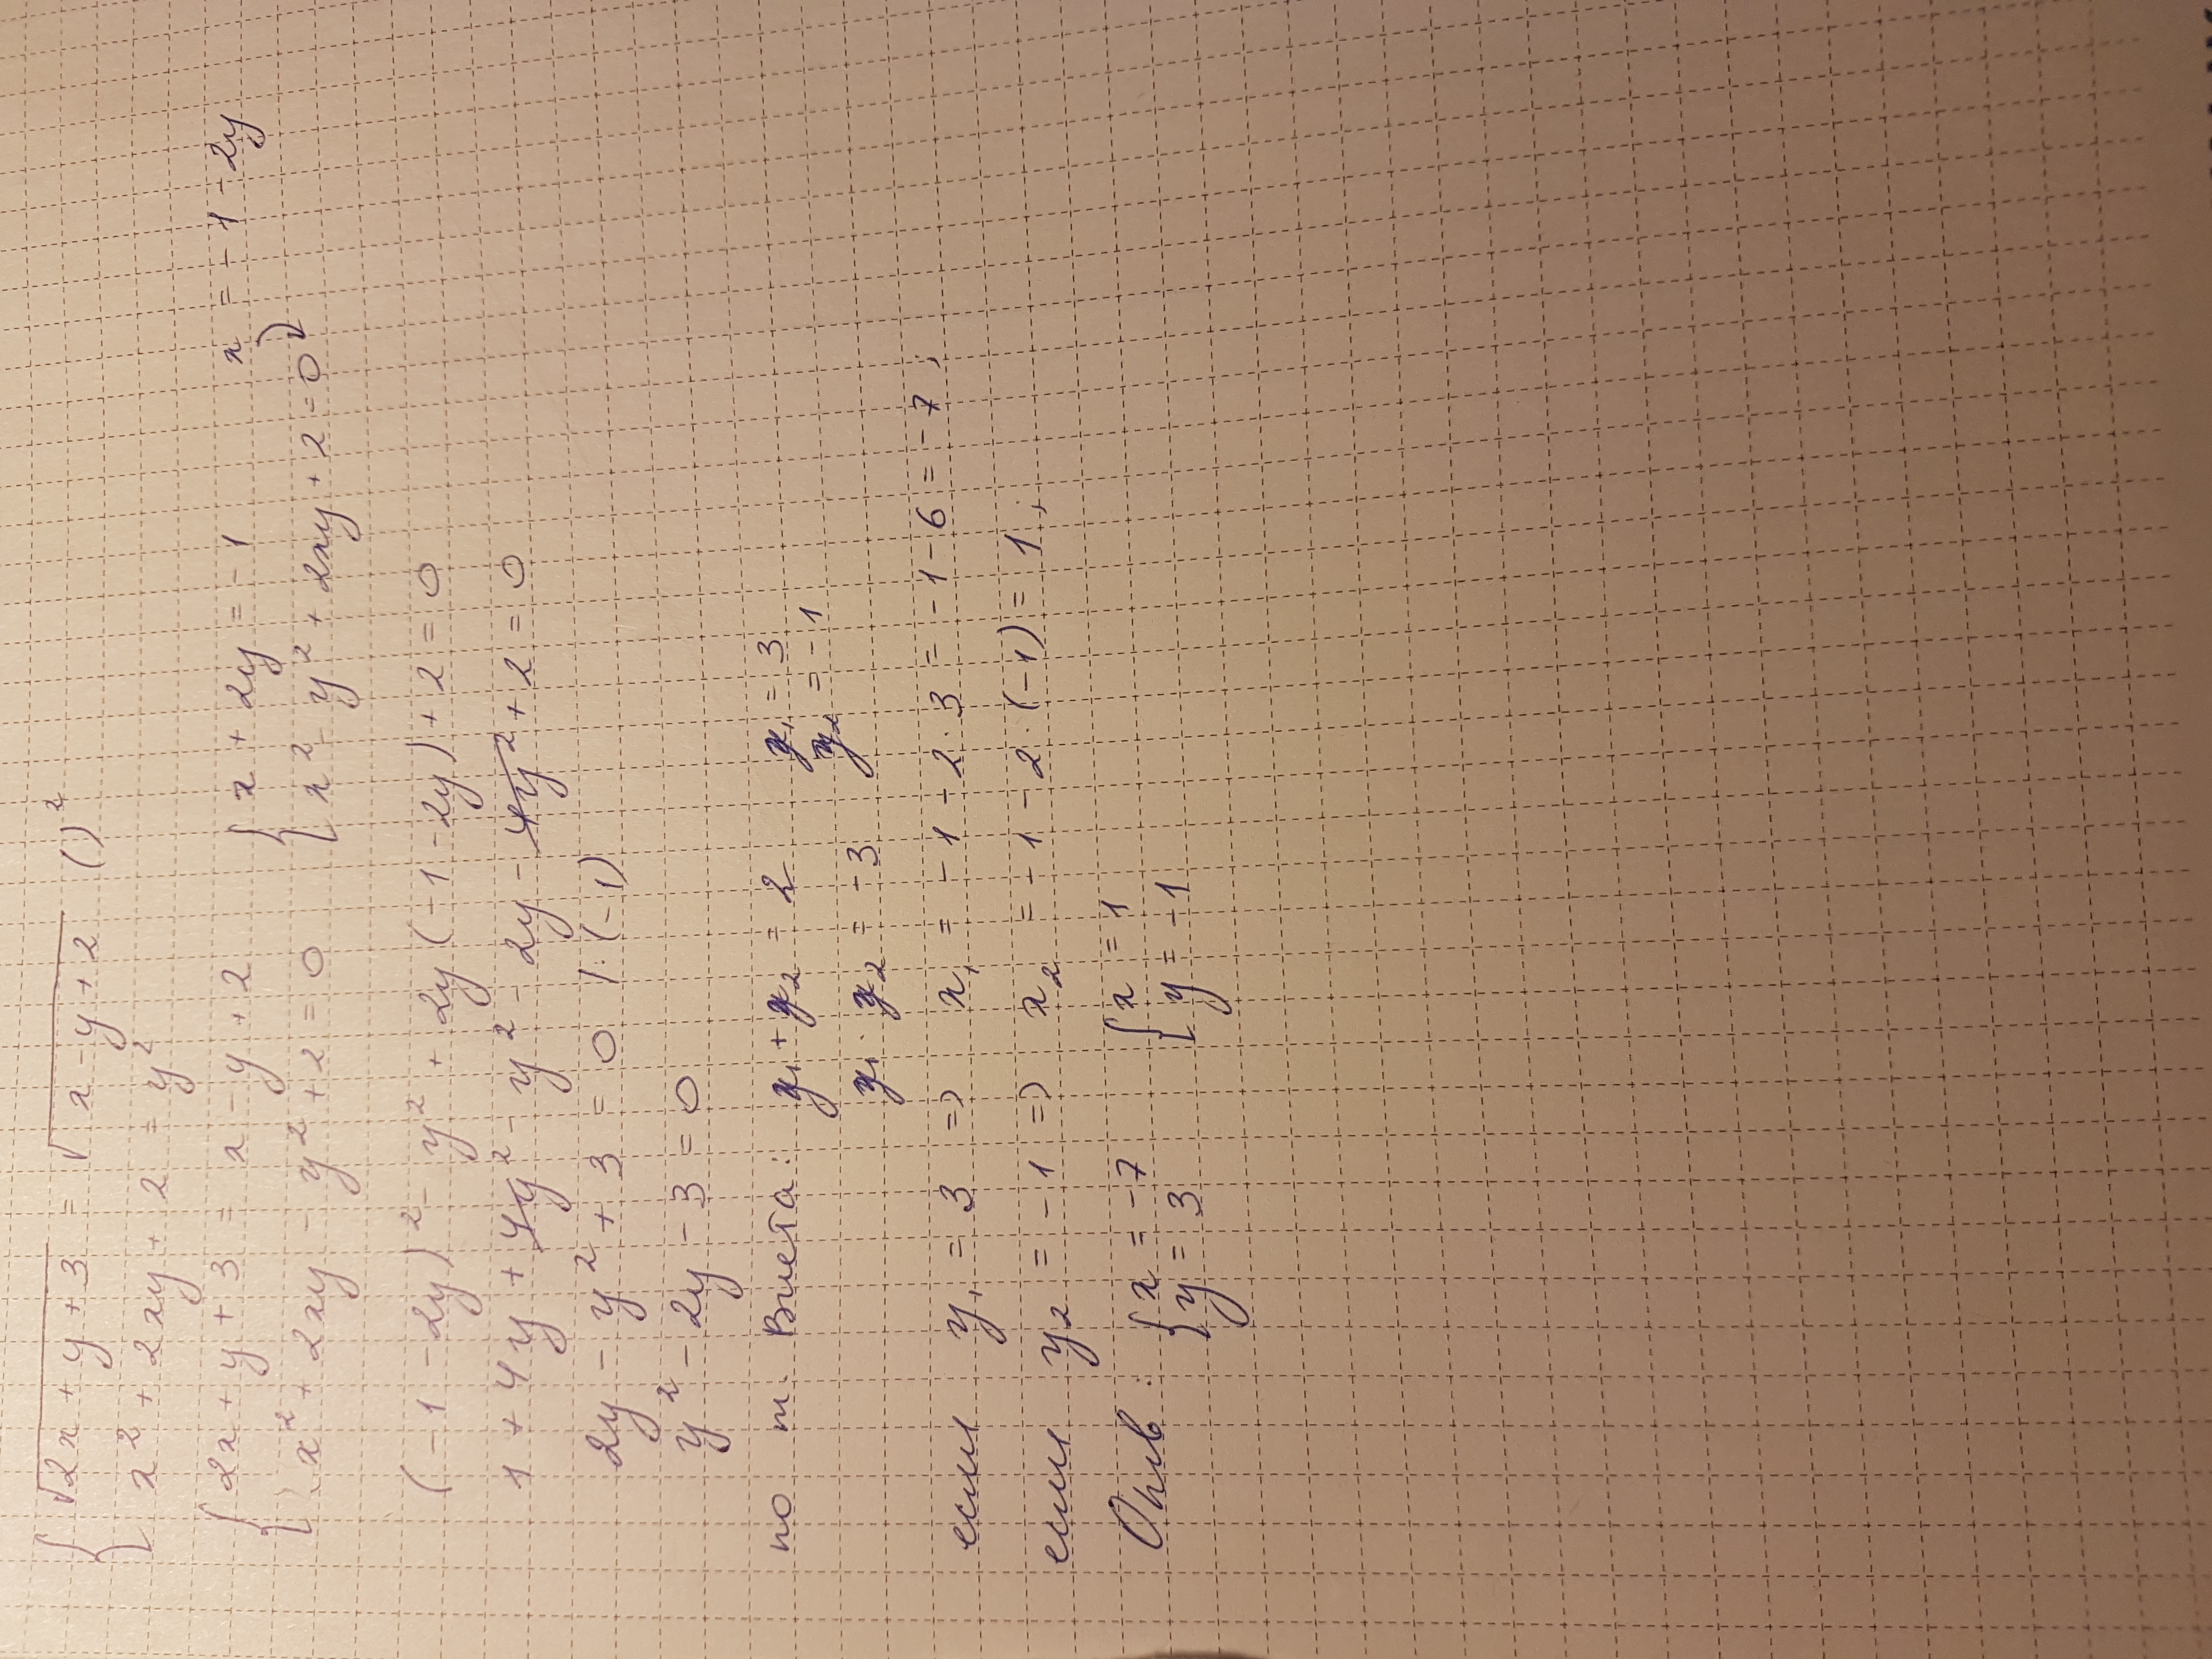 { √(2x + y + 3) = √(x - y + 2) ( )²
x² + 2xy + 2 = y²
{ 2x + y + 3 = x - y + 2 { x + 2y = -1 x = -1 - 2y
x² + 2xy - y² + 2 = 0 x² - y² + 2xy + 2 = 0 )
(-1 - 2y)² - y² + 2y(-1 - 2y) + 2 = 0
1 + 4y + 4y² - y² - 2y - 4y² + 2 = 0
2y - y² + 3 = 0 | · (-1)
y² - 2y - 3 = 0
по т. Виета: y₁ + y₂ = 2 y₁ = 3
y₁ · y₂ = -3 y₂ = -1
если y₁ = 3 => x₁ = -1 - 2 · 3 = -1 - 6 = -7;
если y₂ = -1 => x₂ = -1 - 2 · (-1) = 1;
Отв: { x = -7 { x = 1
y = 3 y = -1